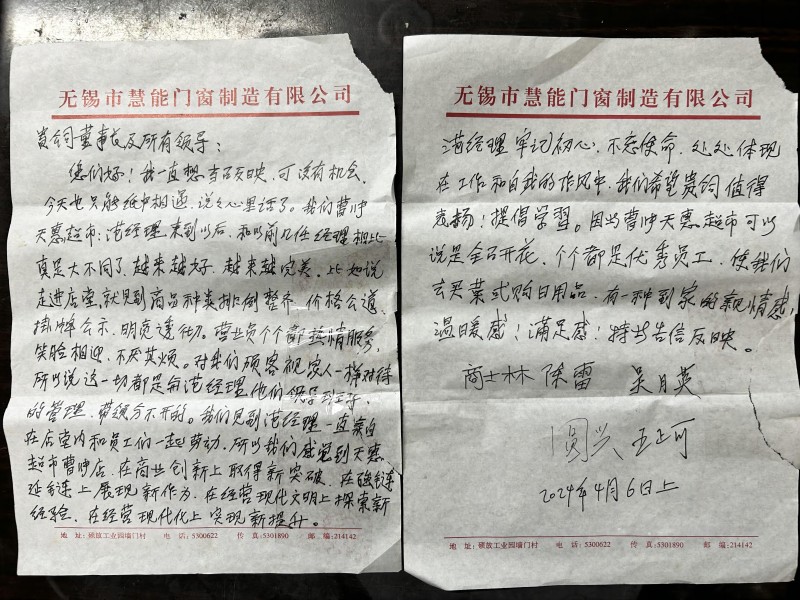 无锡市慧能门窗制造有限公司
贵司董事长及所有领导：
您们好！我一直想去反映，可没有机会，
今天也只能纸中相遇，说说心里话了。我们曹冲
天惠超市：范经理来到以后，和以前几任经理相比
真是大不同了，越来越好，越来越完美，比如说
走进店堂，就见到商品种类排例整齐，价格公道，
挂牌公示，明亮透彻。营业员个个都热情服务，
笑脸相迎，不厌其烦。对我们顾客视家人一样对待
所以说这一切都是与范经理他们领导到
的管理，带领分不开的。我们见到范经理一直亲自
在店堂内和员工们一起劳动，所以我们感觉到天惠
超市曹冲店，在商业创新上取得新突破，在强链
延链上展现新作为，在经营现代文明上探索新
经验，在经营现代化上实现新提升。
地 址：硕放工业园墙门村 电 话：5300622 传 真：5301890 邮 编：214142
无锡市慧能门窗制造有限公司
范经理牢记初心，不忘使命，处处体现
在工作和自我的作风中，我们希望贵司值得
表扬！提倡学习。因为曹冲天惠超市可以
说是全面开花，个个都是优秀员工，使我们
去买菜或购日用品，有一种到家的亲情感，
温暖感！满足感！特此告信反映。
商士林 陈雷 吴月英
圆兴 王正可
2024年4月6日上
地 址：硕放工业园墙门村 电 话：5300622 传 真：5301890 邮 编：214142